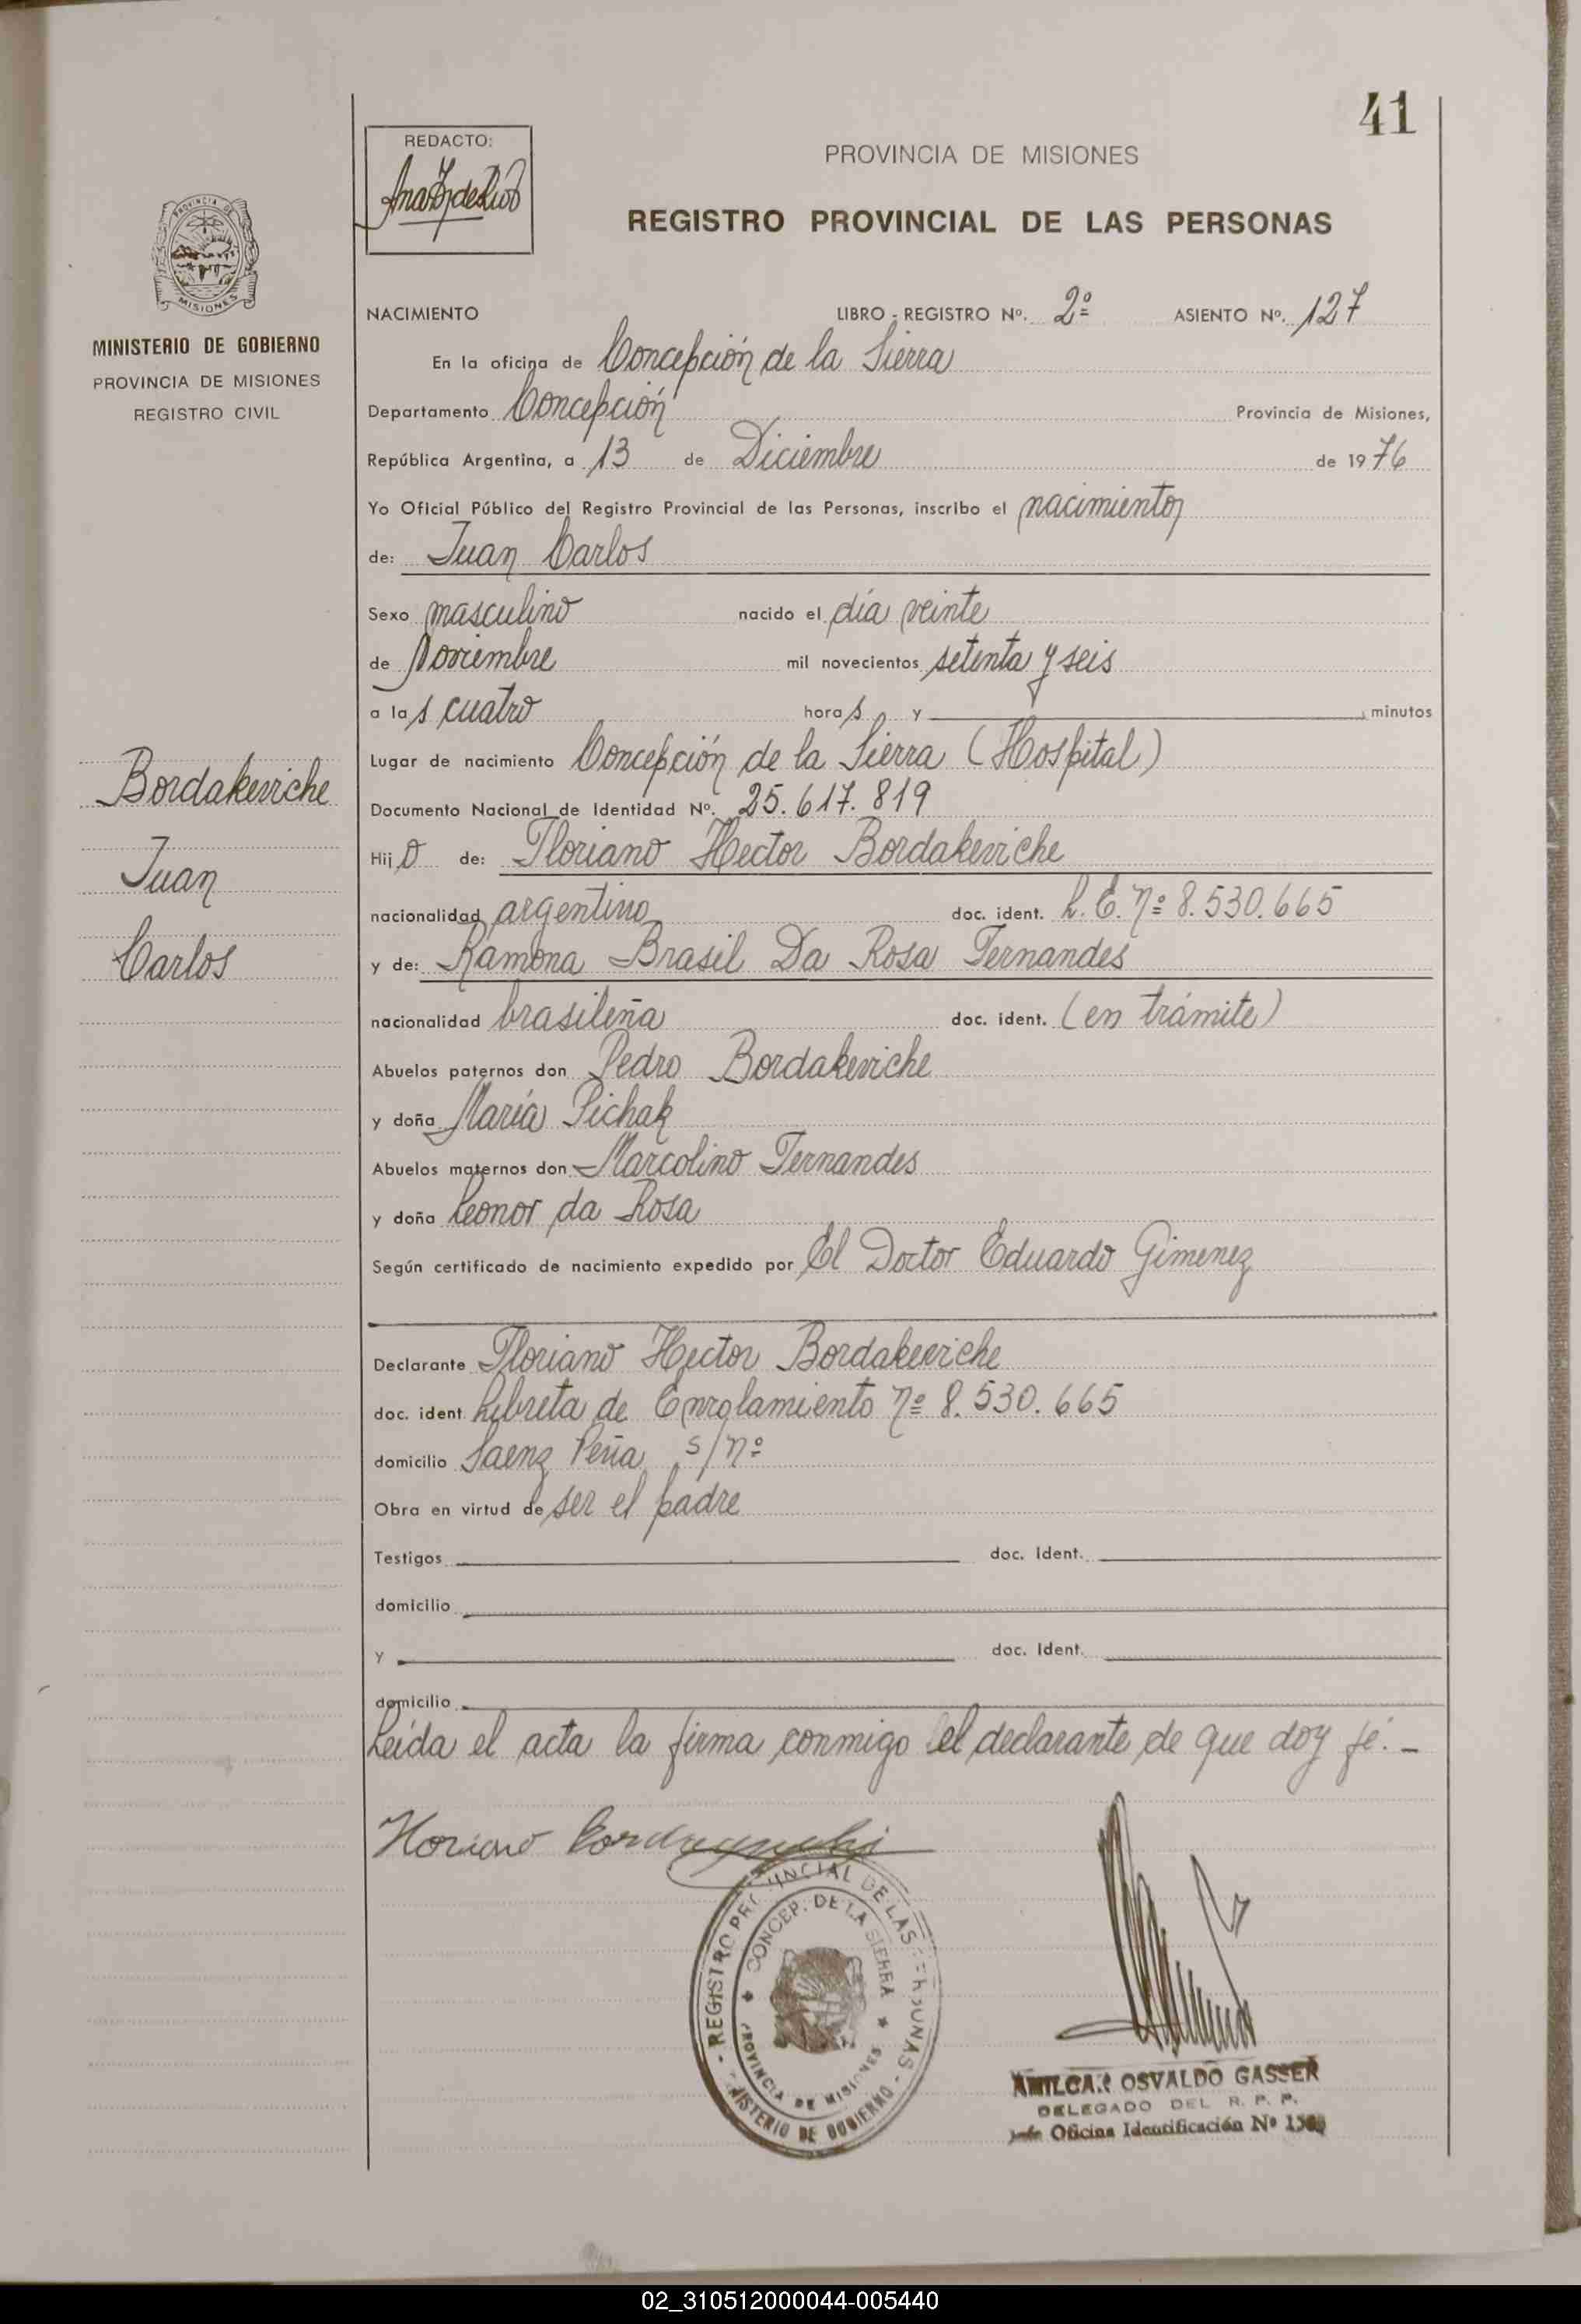 41
REDACTO:
PROVINCIA DE MISIONES
REGISTRO PROVINCIAL DE LAS PERSONAS
PROVINCIA DE
MISIONES
MINISTERIO DE GOBIERNO
PROVINCIA DE MISIONES
REGISTRO CIVIL
NACIMIENTO LIBRO - REGISTRO Nº. 2º ASIENTO Nº. 127
En la oficina de Concepción de la Sierra
Departamento Concepción Provincia de Misiones,
República Argentina, a 13 de Diciembre de 1976
Yo Oficial Público del Registro Provincial de las Personas, inscribo el nacimiento
de: Juan Carlos
Sexo masculino nacido el día veinte
de Noviembre mil novecientos setenta y seis
a las cuatro horas y minutos
Lugar de nacimiento Concepción de la Sierra (Hospital)
Bordakeviche
Juan
Carlos
Documento Nacional de Identidad Nº. 25.617.819
Hijo de: Floriano Hector Bordakeviche
nacionalidad argentino doc. ident. L.E. nº 8.530.665
y de: Ramona Brasil Da Rosa Fernandes
nacionalidad brasileña doc. ident. (en trámite)
Abuelos paternos don Pedro Bordakeviche
y doña María Pichak
Abuelos maternos don Marcolino Fernandes
y doña Leonor da Rosa
Según certificado de nacimiento expedido por El Doctor Eduardo Gimenez
Declarante Floriano Hector Bordakeviche
doc. ident. Libreta de Enrolamiento nº 8.530.665
domicilio Saenz Peña s/nº
Obra en virtud de ser el padre
Testigos doc. Ident.
domicilio
y doc. Ident.
domicilio
Leída el acta la firma conmigo el declarante de que doy fé. -
REGISTRO PROVINCIAL DE LAS PERSONAS
CONCEP. DE LA SIERRA
PROVINCIA DE MISIONES
MINISTERIO DE GOBIERNO
AMILCAR OSVALDO GASSER
DELEGADO DEL R. P. P.
Oficina Identificación Nº
02_310512000044-005440